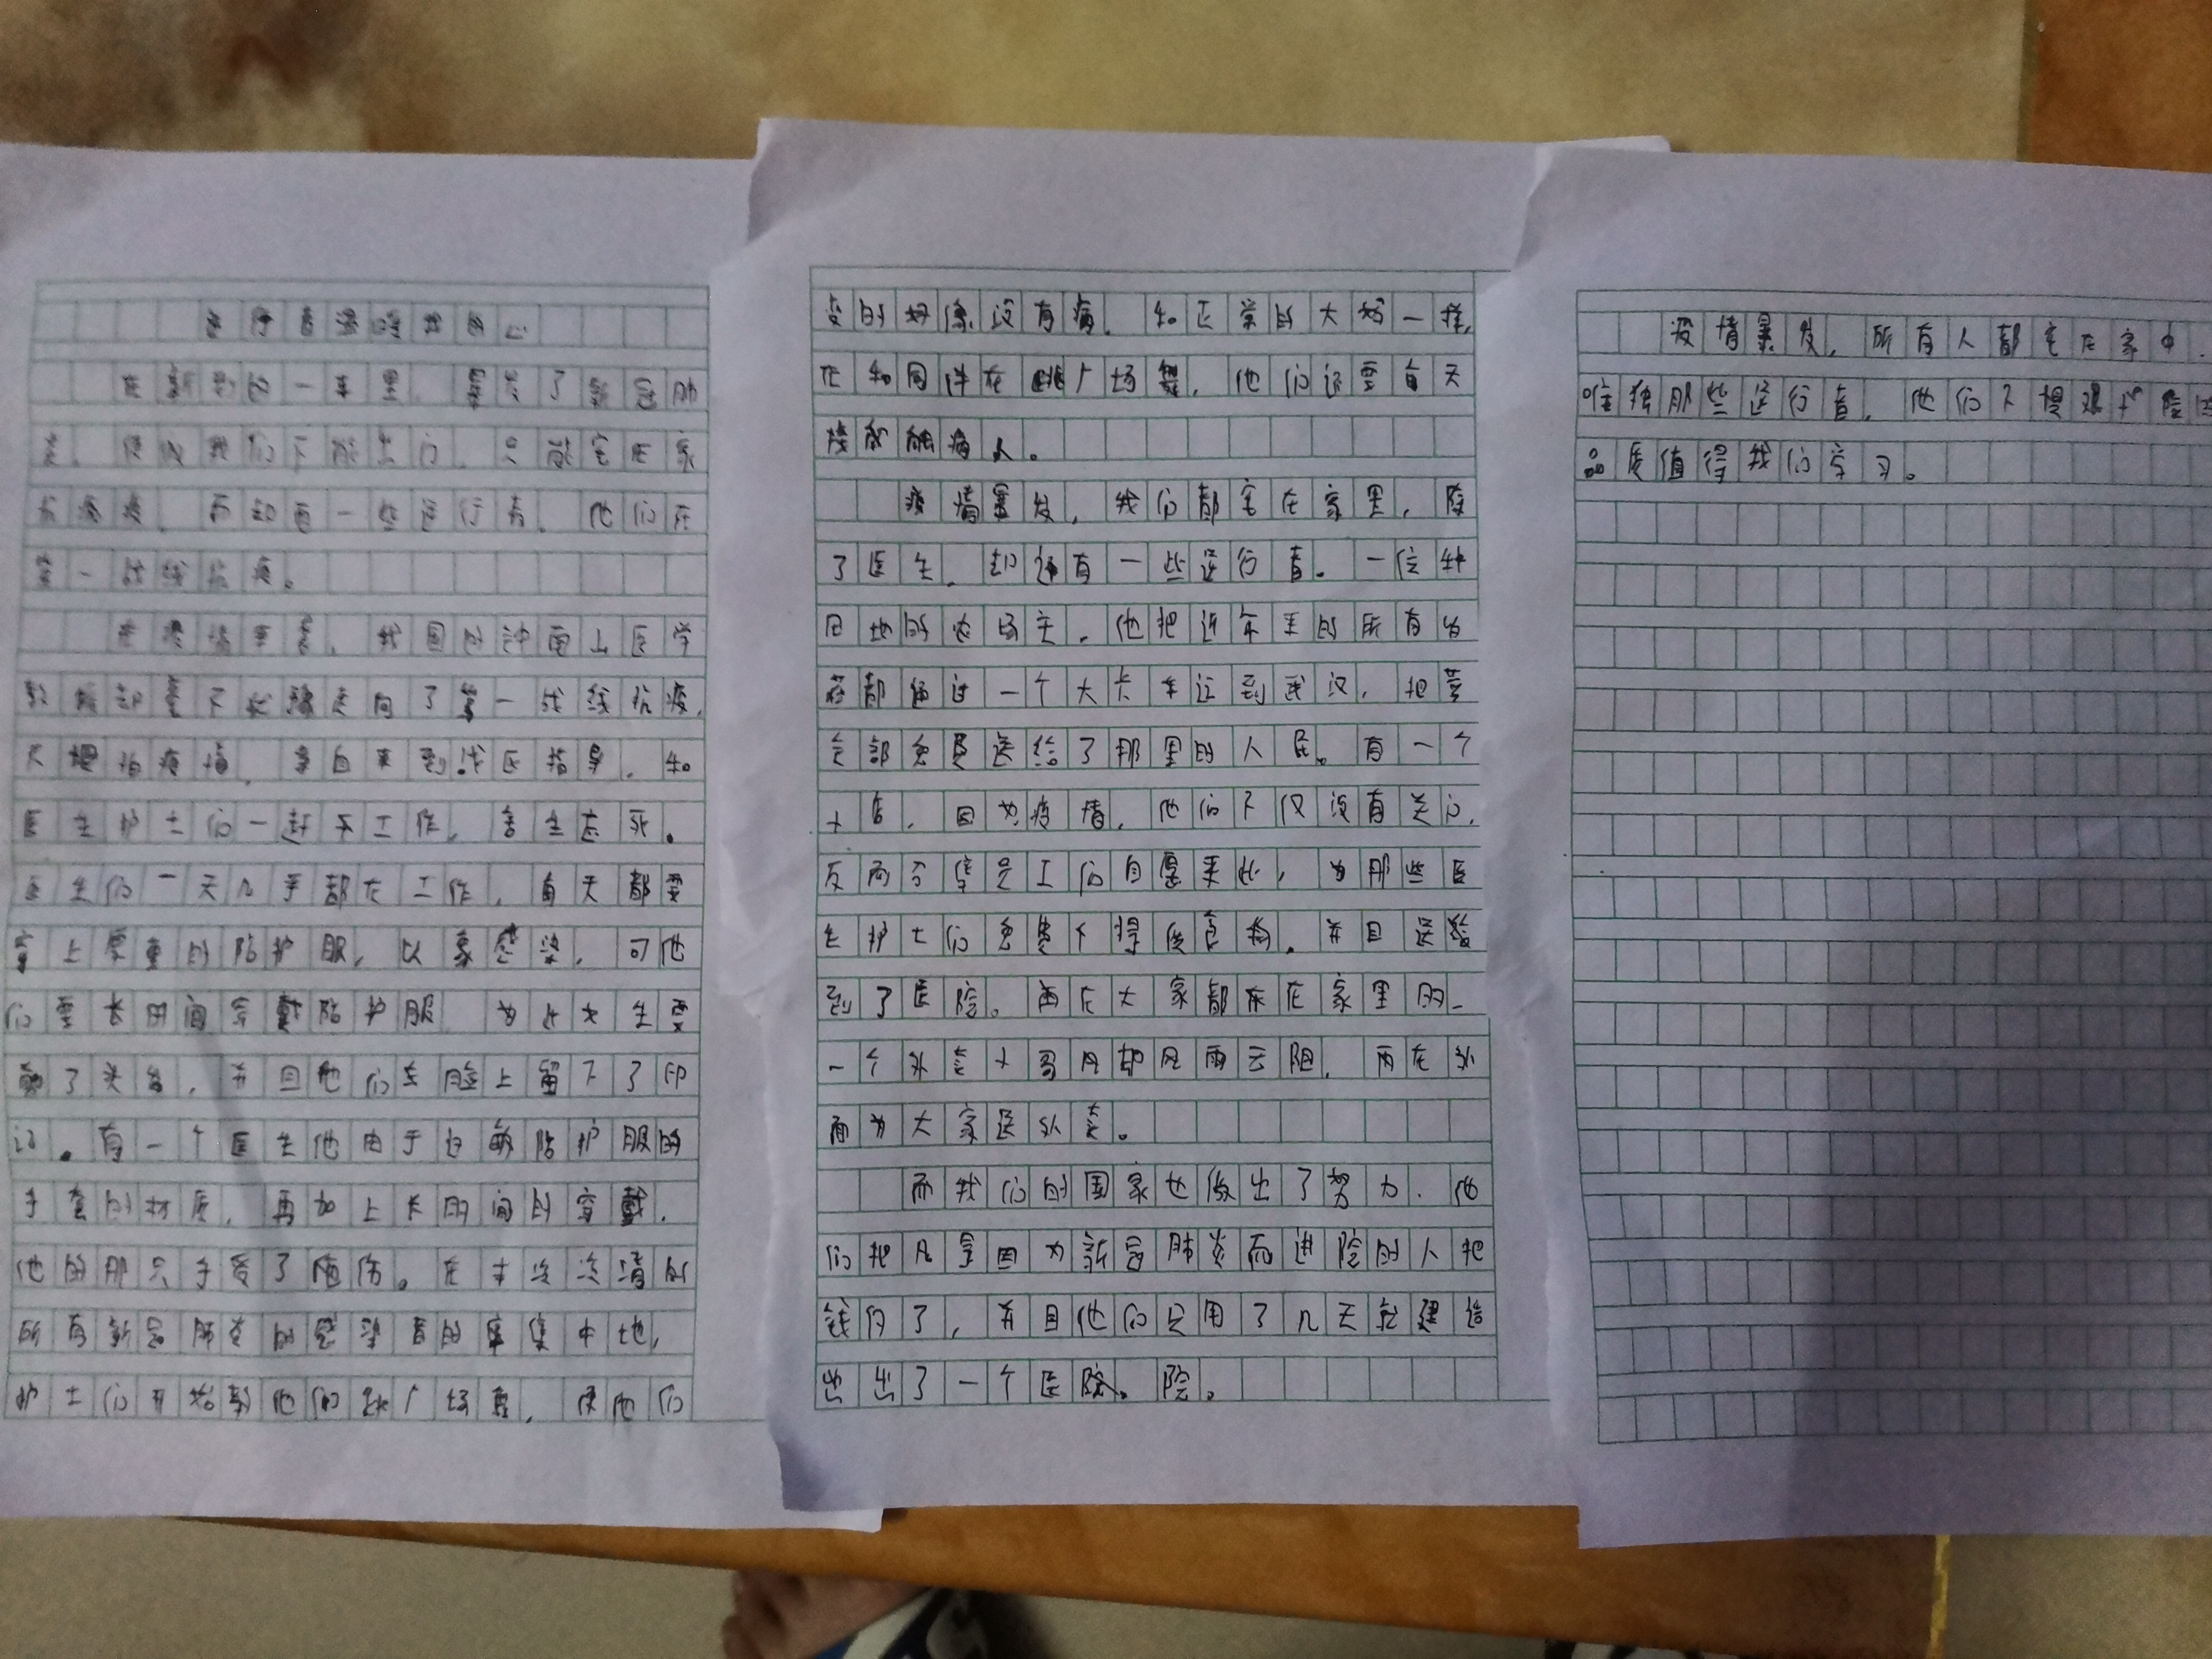 在新到的一年里，暴发了新冠肺
炎，使我们不能出门，只能宅在家
，而却有一些逆行者，他们在
第一战线抗疫。
，我国的钟南山医学
却毫不犹豫走向了第一战线抗疫，
不惧怕疫情，亲自来到战区指导，和
医生护士们一起千工作，舍生忘死。
医生们一天几乎都在工作，每天都要
穿上厚重的防护服，以家感染，可他
们要长时间穿戴防护服，为此女生要
了头发，并且他们在脸上留下了印
记。有一个医生他由于过敏防护服的
手套的材质，再加上长时间的穿戴，
他的那只手受了创伤。在
所有新冠肺炎的感染者的集中地，
护士们开始带他们跳广场舞，使他们
变的好像没有病，和正常的大妈一样，
在和同伴在跳广场舞，他们还要每天
接触病人。
疫情暴发，我们都宅在家里，除
了医生，却还有一些逆行者。一位种
田地的农场主，他把近年来的所有
都通过一个大卡车运到武汉，把
全部免费送给了那里的人民。有一个
，因为疫情，他们不仅没有关门，
反而令员工们自愿来此，为那些医
生护士们免费提供食物，并且送给
到了医院。而在大家都在家里的
一个外卖小哥风却风雨云阻，而在外
面为大家送外卖。
而我们的国家也做出了努力，他
们把凡是因为新冠肺炎而进院的人把
钱付了，并且他们只用了几天就建造
出出了一个医院。院。
疫情暴发，所有人都宅在家中，
唯独那些逆行者，他们不惧艰
品质值得我们学习。